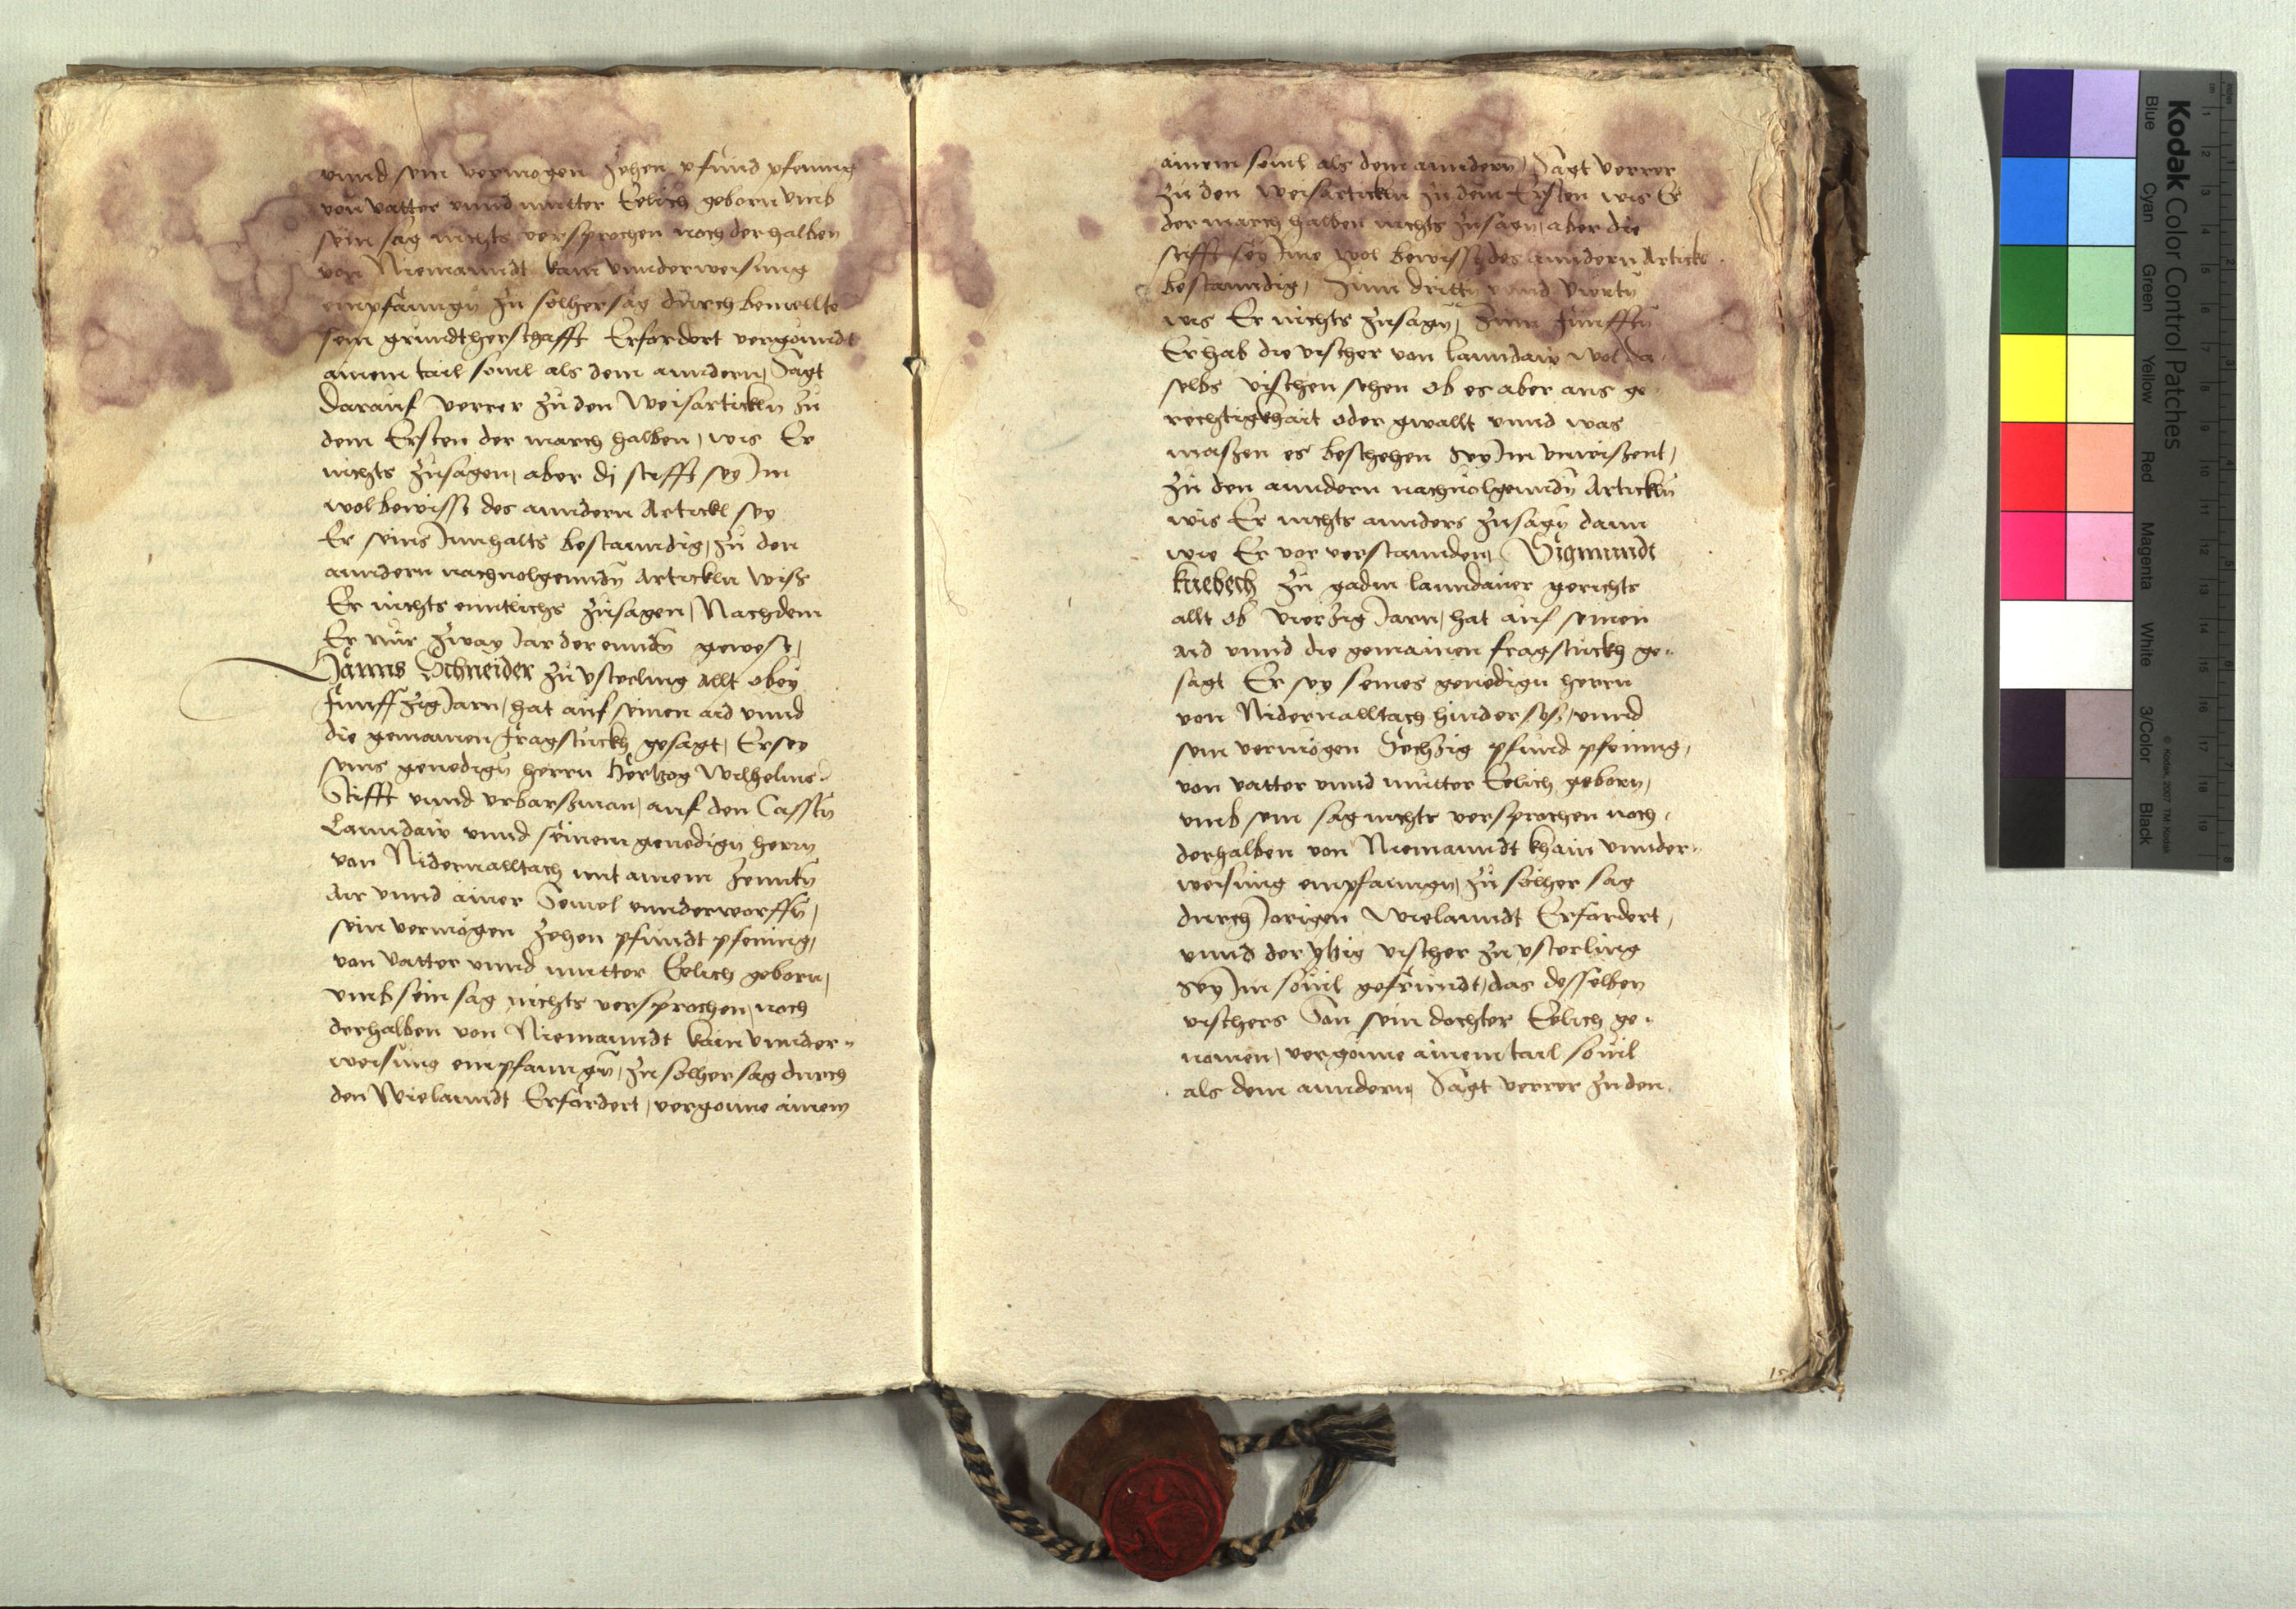 vnnd sein vermogen Zehen pfund pfening
von vatter vnnd mutter Eelich geborn vmb
sein sag nichts versprochen noch derhalben
von Niemanndt kain vnnderweisung
empfanngn zu solher sag durch bemellte
sein grundtherschafft Erfordert vergonndt
ainem tail souil als dem anndern, Sagt
darauf verrer zu den Weisarticklñ zu
dem Ersten der march halben, wis Er
nichts zusagen, aber dj stifft sey Im
wolbewisst des anndern Artickl sey
Er seins Innhalts bestanndig, zu den
anndern nachuolgenndñ Artickln wiss
Er nichts enntlichs zusagen, Nachdem
Er nur zway Jar der ennden gewest,
Hanns Schneider zu vsterling Allt obey
Funffzig Jarn, hat auf seinen aid vnnd
die gemainen fragstuckh gesagt, Er sey
seins genedign herrn Hertzog Wilhelms
Stifft vnnd vrbarsman, auf den Casstñ
Lanndaw vnnd seinem genedign herrn
von Nidernalltach mit ainem Zenntñ
Air vnnd ainer Semel vnnderworffñ,
sein vermogen Zehen pfundt pfening,
von Vatter vnnd mutter Eelich geborn,
vmb sein sag nichts versprochen, noch
derhalben von Niemanndt kain vnnder-
weisung empfanngñ, zu solher sag durch
den Wielanndt Erfordert, vergonne ainem
ainem souil als dem anndern, Sagt verrer
zu den Weisartickln zu dem Ersten wis Er
der march halben nichts zusagn, aber die
stifft sey Ime wol bewisst des anndern Artickls
bestanndig, Zum drittn vnnd Viertñ
wis Er nichts zusagñ, Zum Funfftñ
Er hab die vischer von lanndaw wol da-
selbs vischen sehen ob es aber aus ge-
rechtigkhait oder gwallt vnnd was
massen es beschehen sey Im vnwissent,
zu den anndern nachuolgenndñ Articklñ
wis Er nichts annders zusagñ dann
wie Er vor verstannden, Sigmundt
kuebeckh zu gadm lanndauer gerichts
allt ob vierzig Jarn, hat auf seinen
aid vnnd die gemainen fragstuckh ge-
sagt Er sey seines genedign herrn
von Nidernalltach hindersess, vnnd
sein vermogen Sechzig pfund pfening,
von vatter vnnd mutter Eelich geborn,
vmb sein sag nichts versprochen noch
derhalben von Niemanndt khain vnnder-
weisung empfanngn, zu solher sag
durch Jorigen Wielanndt Erfordert,
vnnd der yetzig vischer zu vsterling
sey Im souil gefrundt, das desselben
vischers Son sein dochter Eelich ge-
nomen, vergonne ainem tail souil
als dem anndern, Sagt verrer zu den
15
Kodak Color Control Patches
Blue
Cyan
Green
Yellow
Red
Magenta
White
3/Color
Black
© Kodak, 2007 TM: Kodak